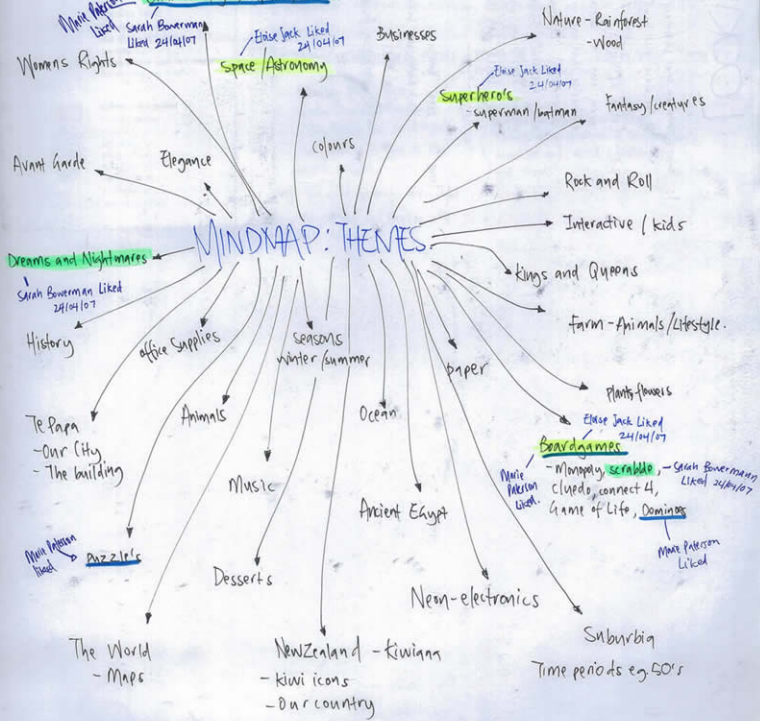 Marie Paterson
Liked
Sarah Bowerman
Liked 24/04/07
Womens Rights
Eloise Jack Liked
24/04/07
Space/Astronomy
Businesses
Nature - Rainforest
- Wood
Eloise Jack Liked
24/04/07
Superhero's
- superman/batman
Fantasy/creatures
Avant Garde
Elegance
colours
Rock and Roll
Interactive / kids
MINDMAP: THEMES
Dreams and Nightmares
Sarah Bowerman Liked
24/04/07
Kings and Queens
History
office supplies
seasons
winter/summer
Farm - Animals/Lifestyle.
paper
plants flowers
Te Papa
- Our City
- The building
Animals
Ocean
Eloise Jack Liked
24/04/07
Boardgames
Marie
Paterson
Liked.
- Monopoly, scrabble, - Sarah Bowermann
Liked 24/04/07
cluedo, connect 4,
Game of Life, Dominoes
Marie Paterson
Liked
Music
Ancient Egypt
Marie Paterson
liked
Puzzle's
Desserts
Neon-electronics
The World
- Maps
NewZealand - Kiwiana
- kiwi icons
- Our country
Suburbia
Time periods eg. 50's